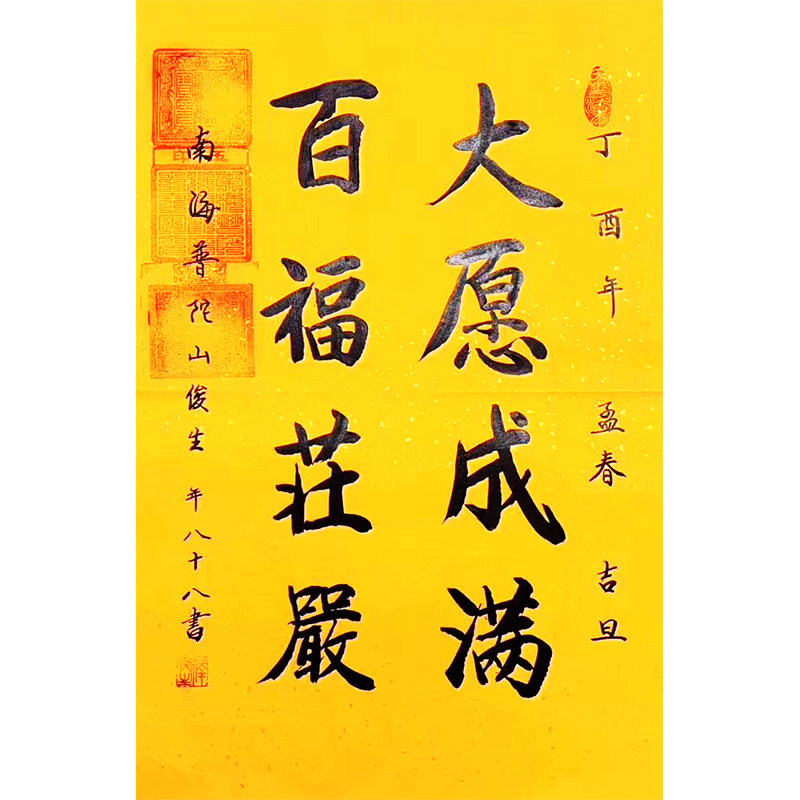 丁酉年 孟春 吉旦
大愿成满
百福莊嚴
南海普陀山俊生 年八十八書